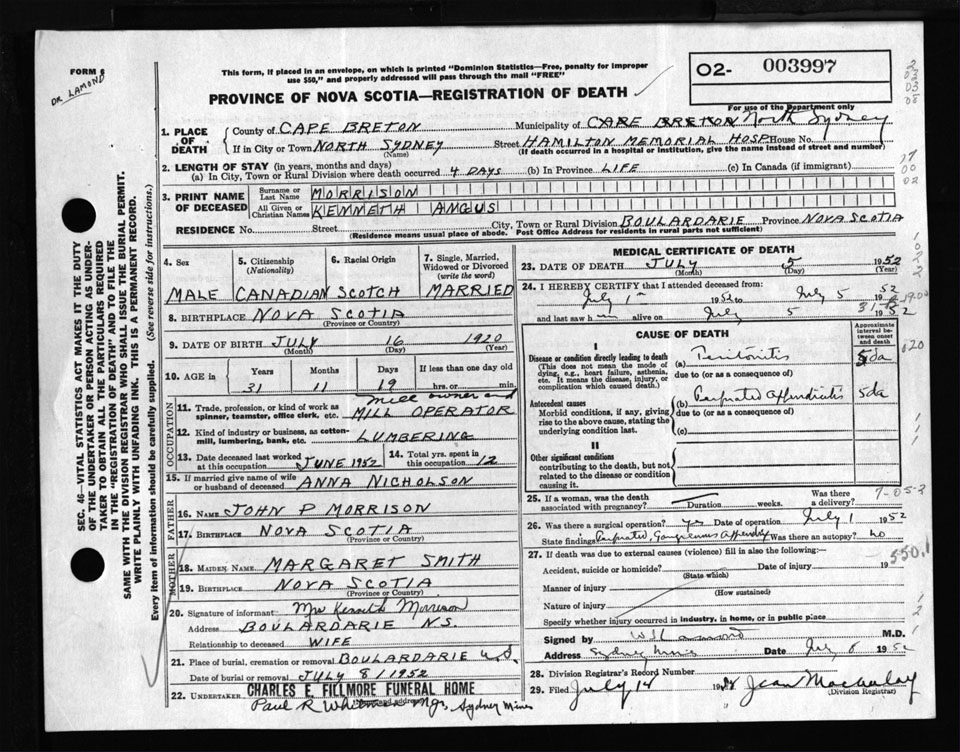 FORM 6
DR. LAMOND
This form, if placed in an envelope, on which is printed "Dominion Statistics—Free, penalty for improper
use $50," and properly addressed will pass through the mail "FREE"
PROVINCE OF NOVA SCOTIA—REGISTRATION OF DEATH
O2- 003997
For use of the Department only
1. PLACE OF DEATH
County of CAPE BRETON Municipality of CAPE BRETON North Sydney
If in City or Town NORTH SYDNEY Street HAMILTON MEMORIAL HOSP House No.
(Name) (If death occurred in a hospital or institution, give the name instead of street and number)
2. LENGTH OF STAY (in years, months and days)
(a) In City, Town or Rural Division where death occurred 4 DAYS (b) In Province LIFE (c) In Canada (if immigrant)
3. PRINT NAME OF DECEASED
Surname or Last Name MORRISON
All Given or Christian Names KENNETH ANGUS
RESIDENCE No. Street City, Town or Rural Division BOULARDARIE Province NOVA SCOTIA
(Residence means usual place of abode. Post Office Address for residents in rural parts not sufficient)
4. Sex
MALE
5. Citizenship
(Nationality)
CANADIAN
6. Racial Origin
SCOTCH
7. Single, Married,
Widowed or Divorced
(write the word)
MARRIED
8. BIRTHPLACE NOVA SCOTIA
(Province or Country)
9. DATE OF BIRTH JULY 16 1920
(Month) (Day) (Year)
10. AGE in
Years Months Days If less than one day old
31 11 19 hrs. or min.
OCCUPATION
11. Trade, profession, or kind of work as
spinner, teamster, office clerk, etc. mill owner and
MILL OPERATOR
12. Kind of industry or business, as cotton-
mill, lumbering, bank, etc. LUMBERING
13. Date deceased last worked
at this occupation JUNE 1952
14. Total yrs. spent in
this occupation 12
15. If married give name of wife
or husband of deceased ANNA NICHOLSON
FATHER
16. Name JOHN P MORRISON
17. Birthplace NOVA SCOTIA
(Province or Country)
MOTHER
18. Maiden Name MARGARET SMITH
19. Birthplace NOVA SCOTIA
(Province or Country)
20. Signature of informant Mrs Kenneth Morrison
Address BOULARDARIE N.S.
Relationship to deceased WIFE
21. Place of burial, cremation or removal BOULARDARIE N.S.
Date of burial or removal JULY 8/1952
22. UNDERTAKER CHARLES E. FILLMORE FUNERAL HOME
(Name and address)
Paul R Mgr, Sydney Mines
MEDICAL CERTIFICATE OF DEATH
23. DATE OF DEATH JULY 5 1952
(Month) (Day) (Year)
24. I HEREBY CERTIFY that I attended deceased from:
July 1 1952 to July 5 1952
and last saw h im alive on July 5 1952
CAUSE OF DEATH
Approximate interval between onset and death
I
Disease or condition directly leading to death
(This does not mean the mode of
dying, e.g., heart failure, asthenia,
etc. It means the disease, injury, or
complication which caused death.)
(a) Peritonitis 5da
due to (or as a consequence of)
Antecedent causes
Morbid conditions, if any, giving
rise to the above cause, stating the
underlying condition last.
(b) Perforated Appendicitis 5da
due to (or as a consequence of)
(c)
II
Other significant conditions
contributing to the death, but not
related to the disease or condition
causing it.
25. If a woman, was the death
associated with pregnancy? Duration weeks. Was there a delivery?
26. Was there a surgical operation? yes Date of operation July 1 1952
State findings Perforated, Gangrenous Appendix Was there an autopsy? no
27. If death was due to external causes (violence) fill in also the following:—
Accident, suicide or homicide? Date of injury 19
(State which)
550.1
Manner of injury
(How sustained)
Nature of injury
Specify whether injury occurred in industry, in home, or in public place
Signed by M.D.
Address Sydney Mines Date July 8 1952
28. Division Registrar's Record Number
29. Filed July 14 1952 Jean Macaulay
(Division Registrar)
SEC. 46—VITAL STATISTICS ACT MAKES IT THE DUTY
OF THE UNDERTAKER OR PERSON ACTING AS UNDER-
TAKER TO OBTAIN ALL THE PARTICULARS REQUIRED
IN THE "REGISTRATION OF DEATH" AND TO FILE THE
SAME WITH THE DIVISION REGISTRAR WHO SHALL ISSUE THE BURIAL PERMIT.
WRITE PLAINLY WITH UNFADING INK. THIS IS A PERMANENT RECORD.
Every item of information should be carefully supplied. (See reverse side for instructions.)